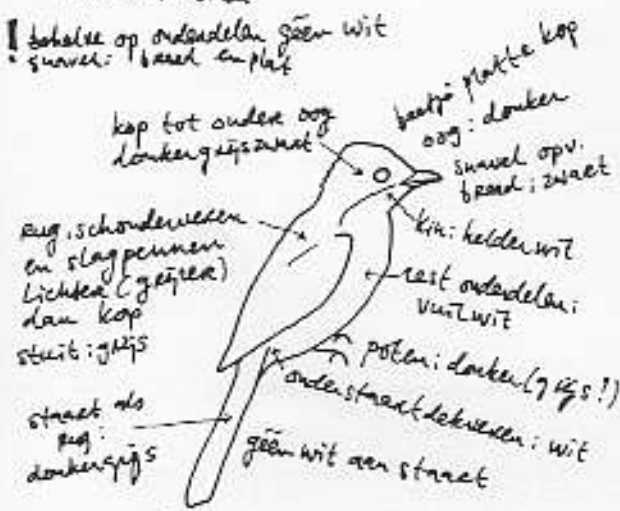 ! behalve op onderdelen géén wit
snavel: breed en plat
kop tot onder oog
donkergrijszwart
beetje platte kop
oog: donker
snavel opv.
breed; zwart
kin: helderwit
rug, schouderveren
en slagpennen
lichter (grijzer)
dan kop
stuit: grijs
rest onderdelen:
vuilwit
poten: donker (grijs!)
onderstaartdekveren: wit
staart als
rug:
donkergrijs
géén wit aan staart